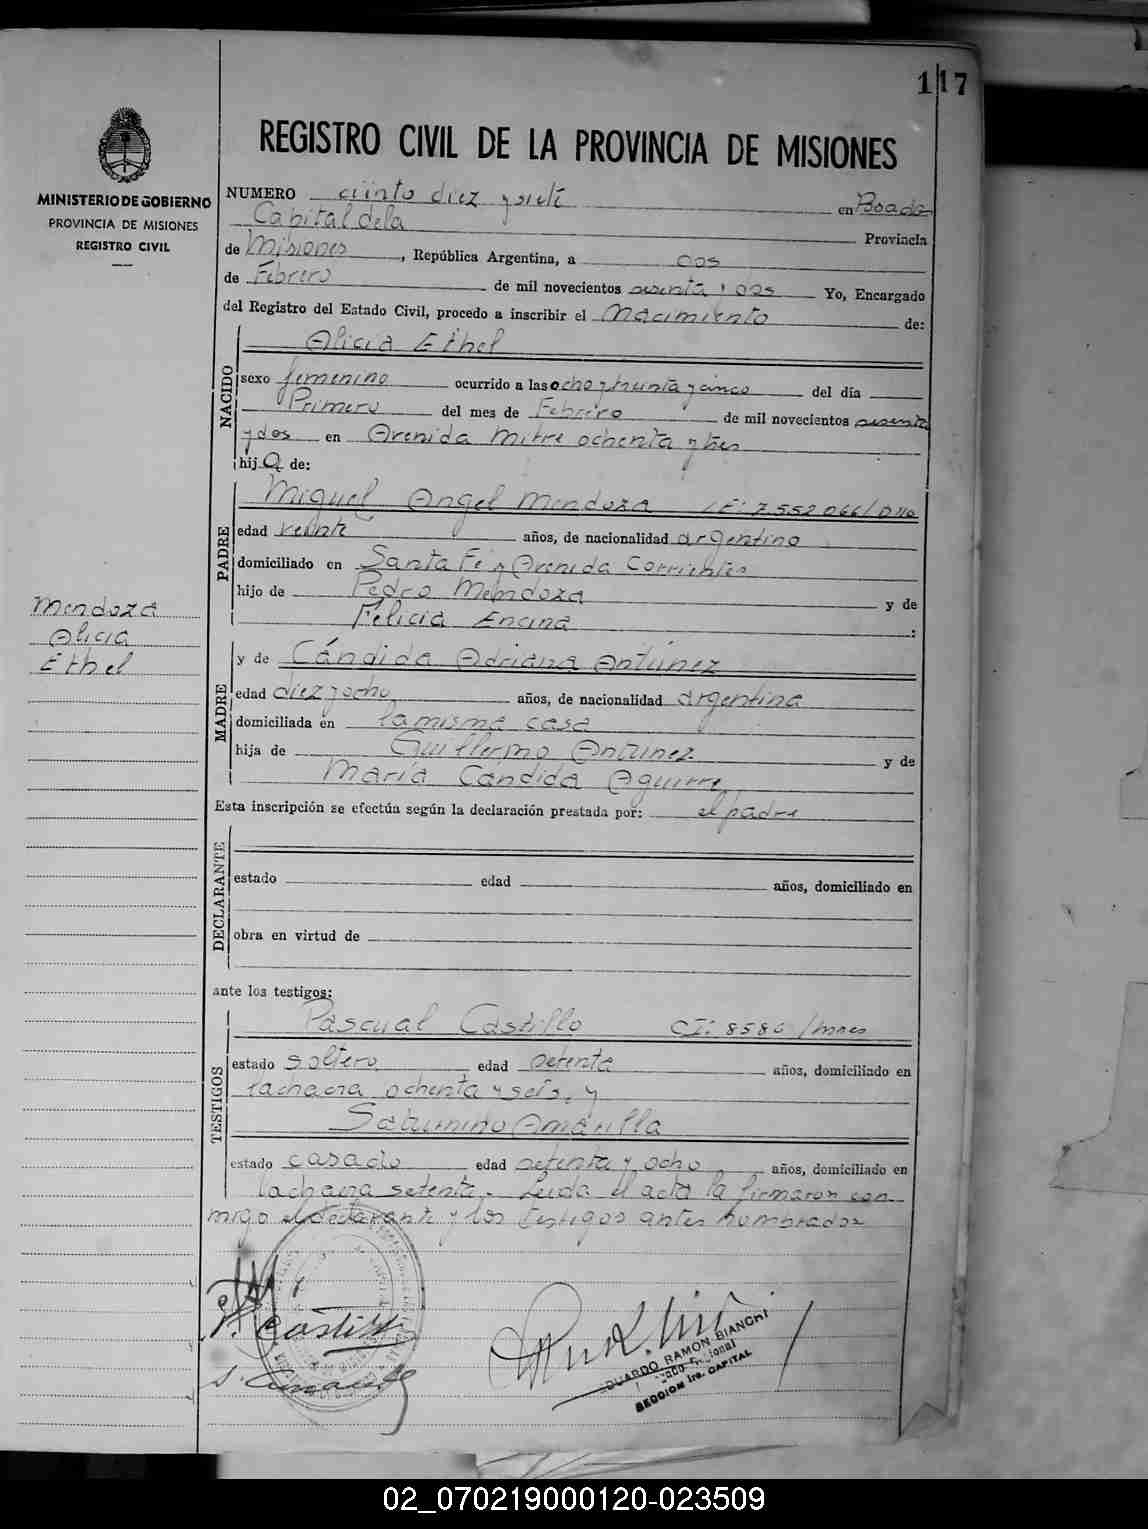 117
REGISTRO CIVIL DE LA PROVINCIA DE MISIONES
MINISTERIO DE GOBIERNO
PROVINCIA DE MISIONES
REGISTRO CIVIL
NUMERO ciento diez y siete en Posadas
Capital de la Provincia
de Misiones, República Argentina, a dos
de Febrero de mil novecientos sesenta y dos Yo, Encargado
del Registro del Estado Civil, procedo a inscribir el Nacimiento de:
NACIDO
Alicia Ethel
sexo femenino ocurrido a las ocho y treinta y cinco del día
Primero del mes de Febrero de mil novecientos sesenta
y dos en Avenida Mitre ochenta y tres
hija de:
PADRE
Miguel Angel Mendoza LE: 7.552.066
edad veinte años, de nacionalidad argentino
domiciliado en Santa Fe y Avenida Corrientes
hijo de Pedro Mendoza y de
Felicia Encina :
Mendoza
Alicia
Ethel
MADRE
y de Cándida Adriana Antúnez
edad diez y ocho años, de nacionalidad argentina
domiciliada en la misma casa
hija de Guillermo Antunez y de
María Candida Aguirre
Esta inscripción se efectúa según la declaración prestada por: el padre
DECLARANTE
estado edad años, domiciliado en
obra en virtud de
ante los testigos:
TESTIGOS
Pascual Castillo CI: 8586 /Mnes
estado soltero edad setenta años, domiciliado en
la chacra ochenta y seis, y
Saturnino Amarilla
estado casado edad setenta y ocho años, domiciliado en
la chacra setenta. Leida el acta la firmaron con
migo el declarante y los testigos antes nombrados
P. Castillo
EDUARDO RAMON BIANCHI
SECCION 1ra. CAPITAL
02_070219000120-023509